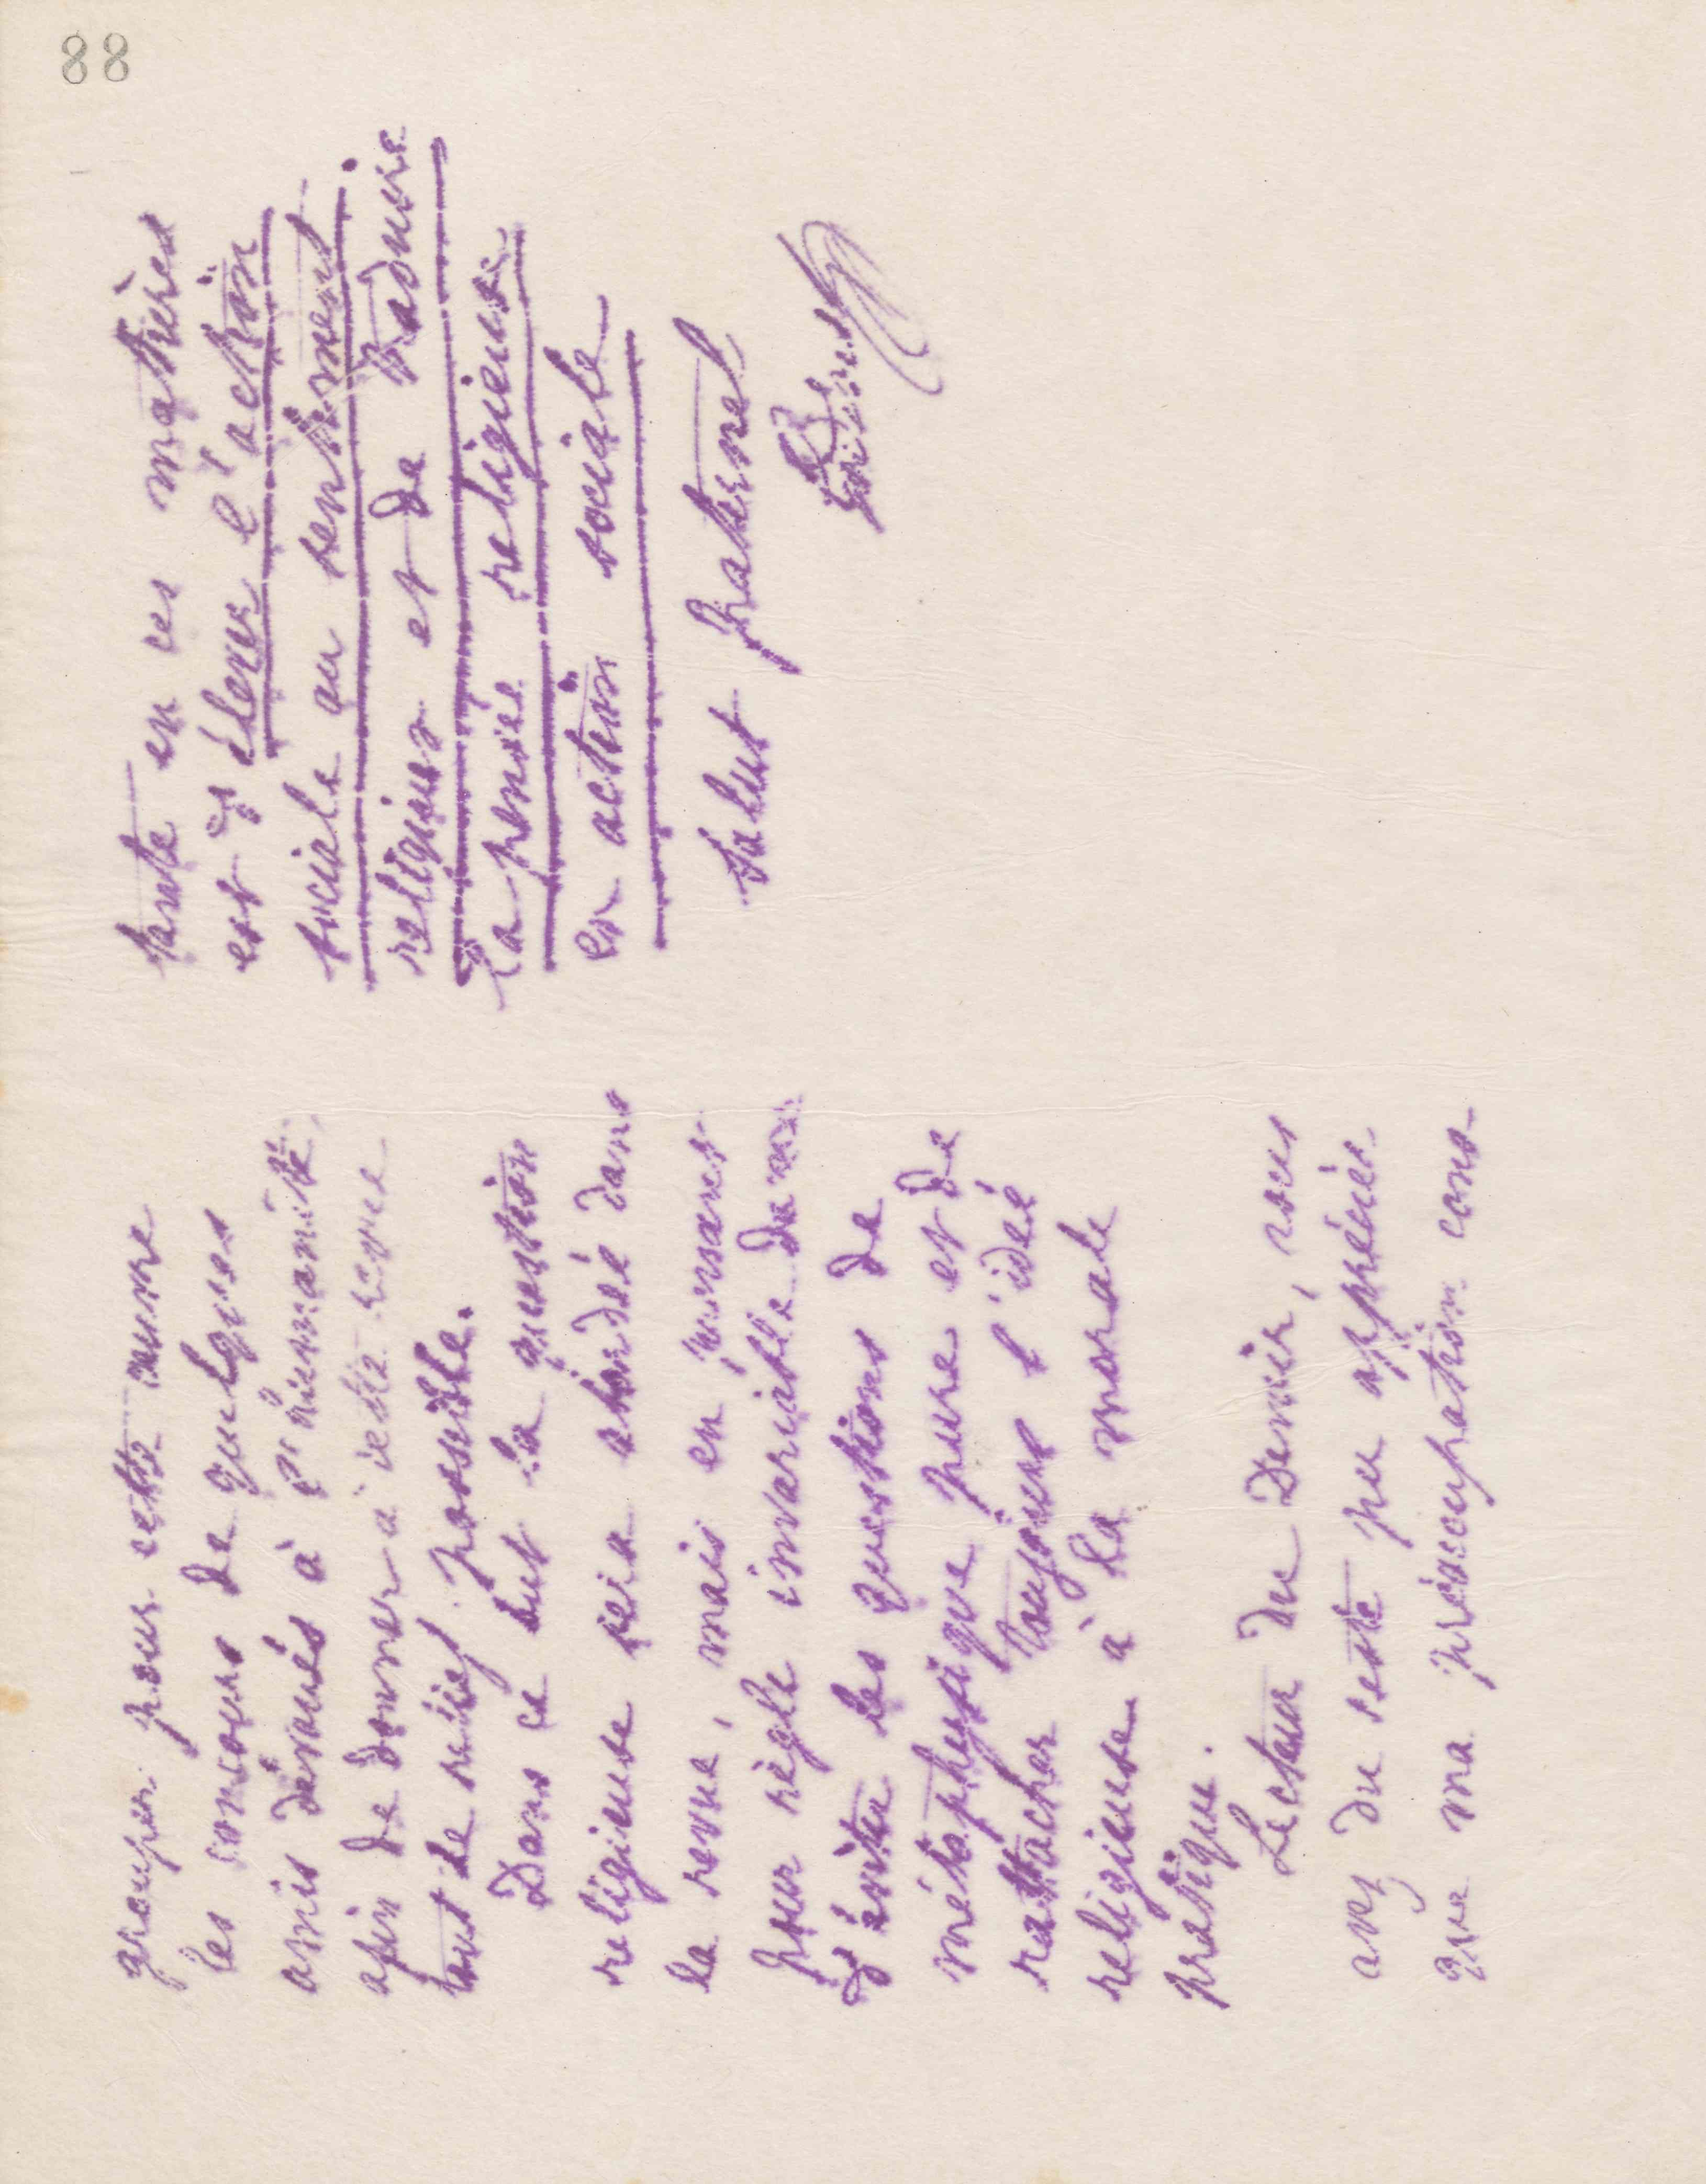 88
grouper pour cette œuvre
les concours de quelques
amis dévoués à l'humanité,
afin de donner à cette revue
tout le relief possible.
Dans ce but la question
religieuse sera abordée dans
la revue, mais en prenant
pour règle invariable
d'éviter les questions de
métaphysique pure et de
rattacher toujours l'idée
religieuse à la morale
pratique.
Lecteur du Devoir, vous
avez du reste pu apprécier
que ma préoccupation cons-
tante en ces matières
est d'élever l'action
sociale au sentiment
religieux et de traduire
la pensée religieuse
en action sociale
Salut fraternel